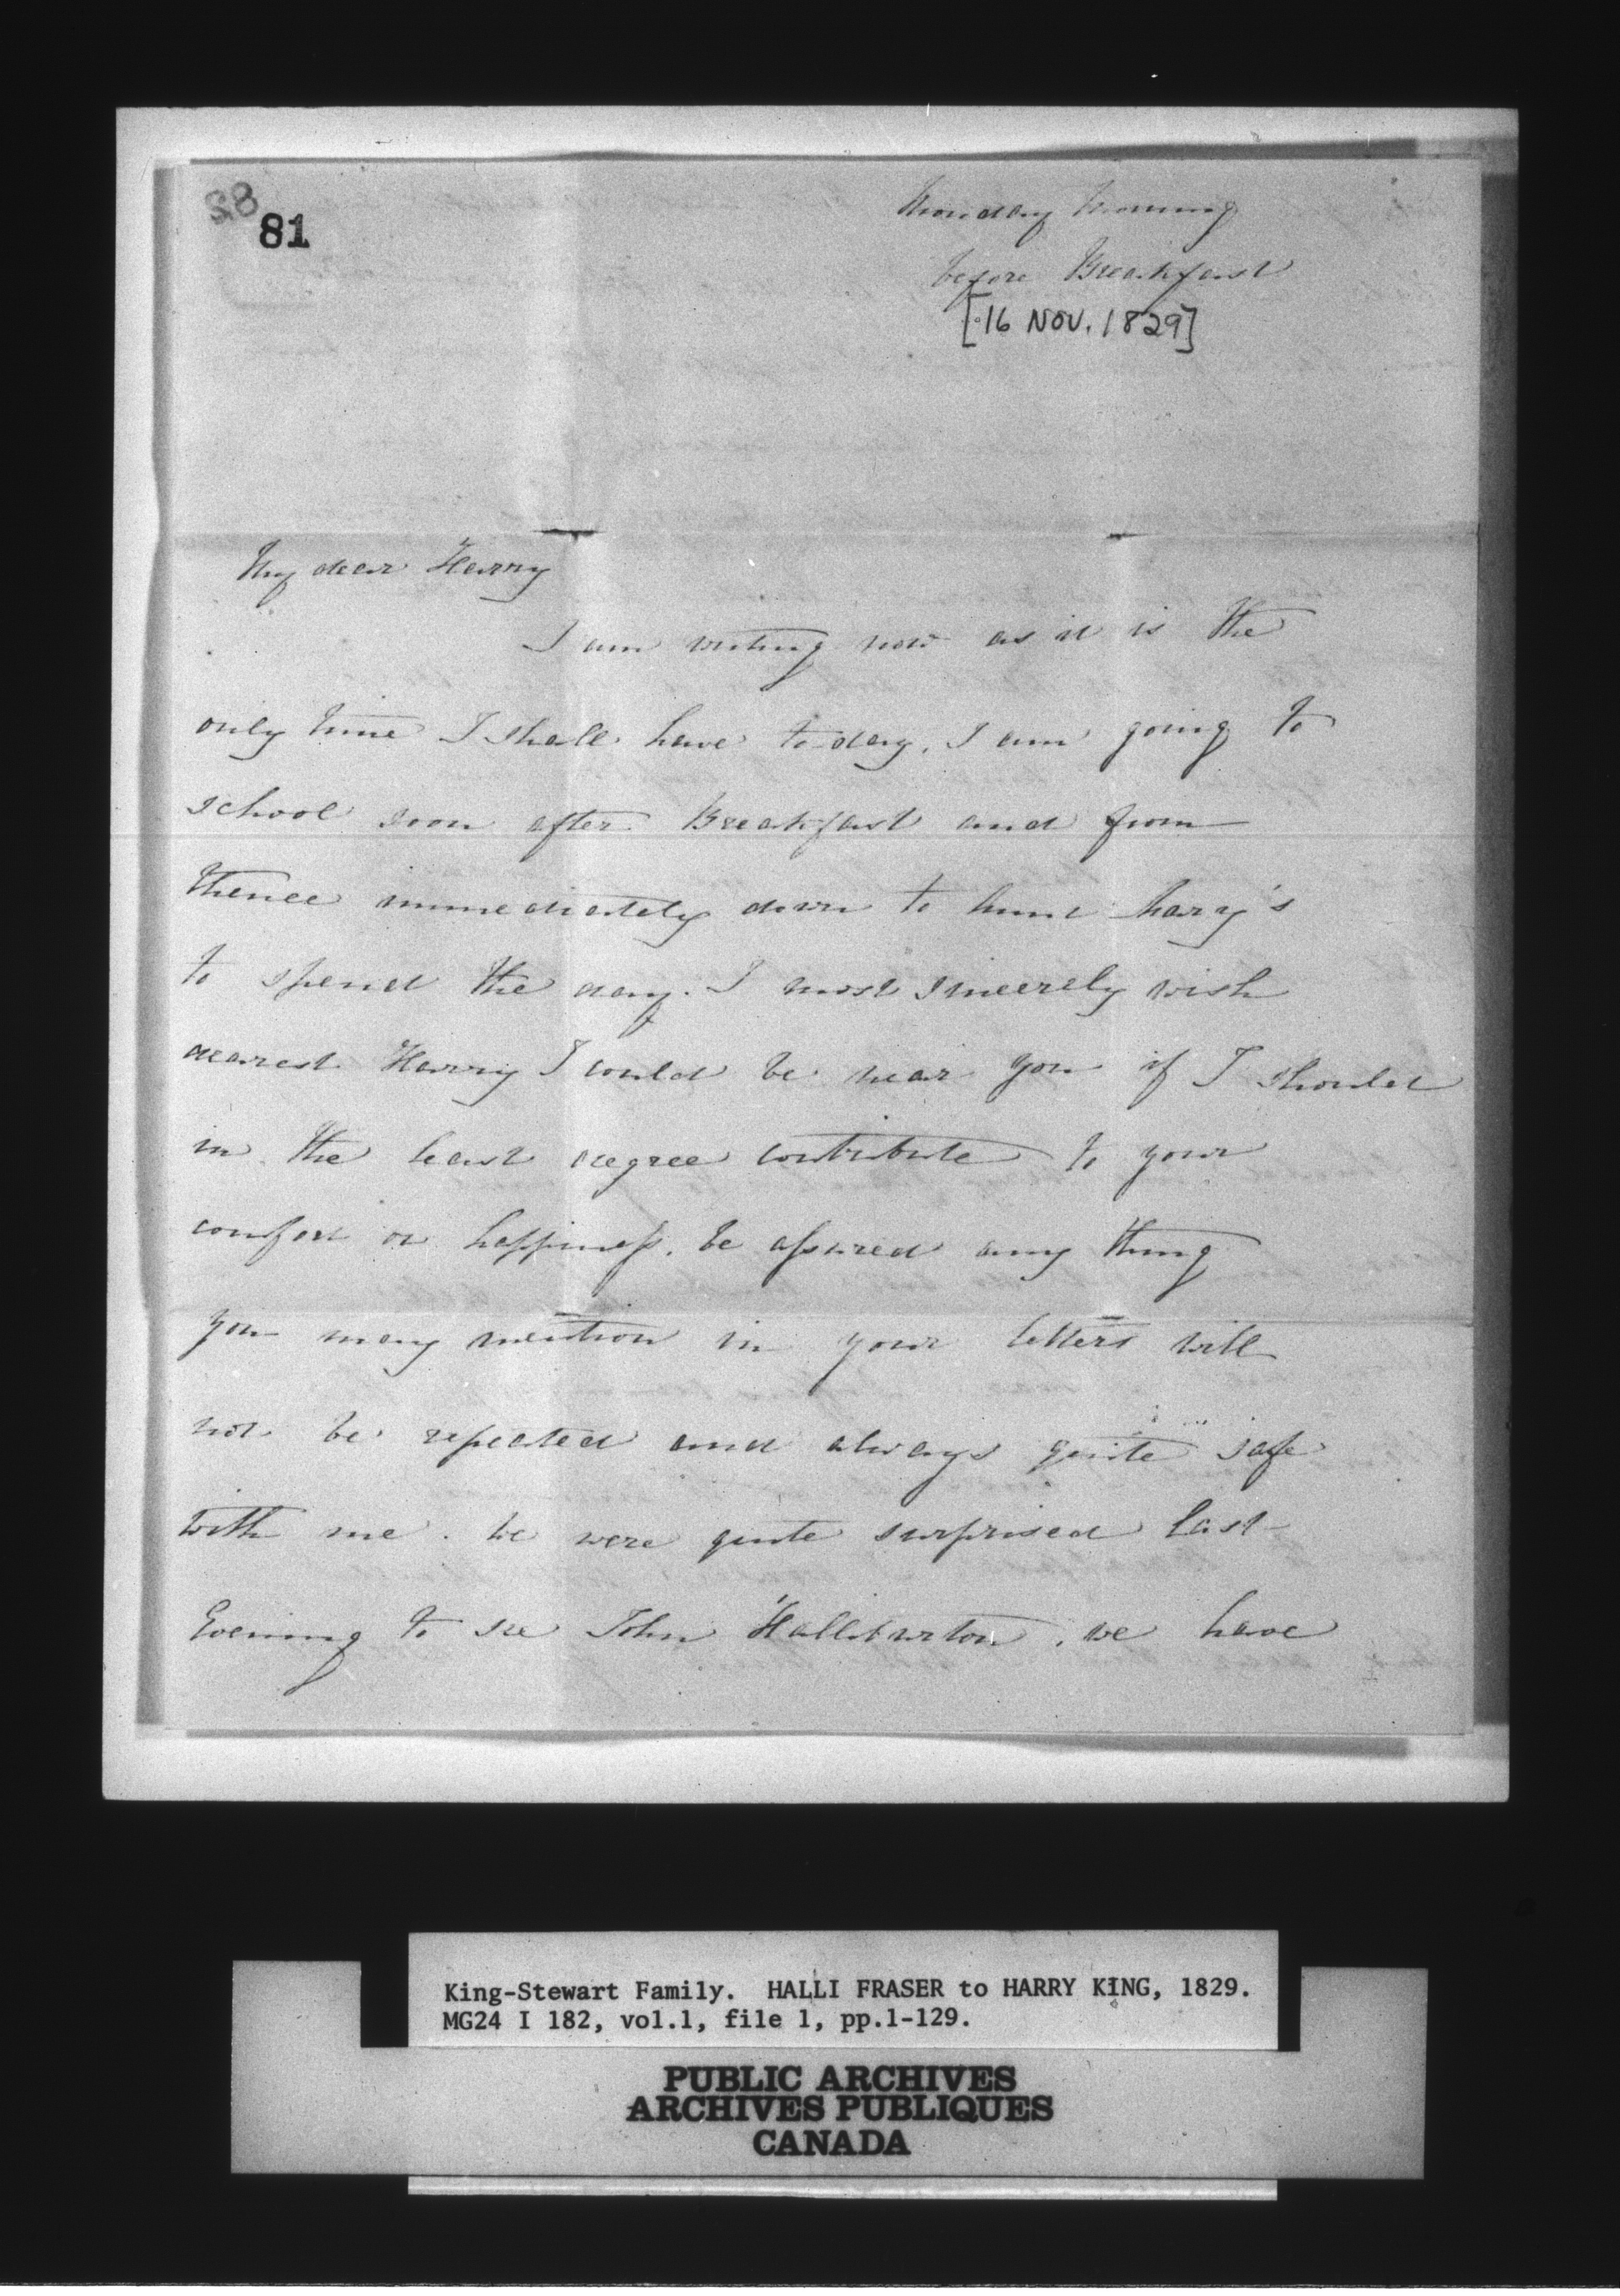 88
81
Monday Morning
before Breakfast
[16 NOV. 1829]
My dear Harry
I am writing now as it is the
only time I shall have to-day. I am going to
school soon after Breakfast and from
thence immediately down to Aunt Mary's
to spend the day. I most sincerely wish
dearest Harry I could be near you if I should
in the least degree contribute to your
comfort or happiness. be assured any thing
you may mention in your letters will
not be repeated and always quite safe
with me. We were quite surprised last
Evening to see John Halliburton. we have
King-Stewart Family. HALLI FRASER to HARRY KING, 1829.
MG24 I 182, vol.1, file 1, pp.1-129.
PUBLIC ARCHIVES
ARCHIVES PUBLIQUES
CANADA